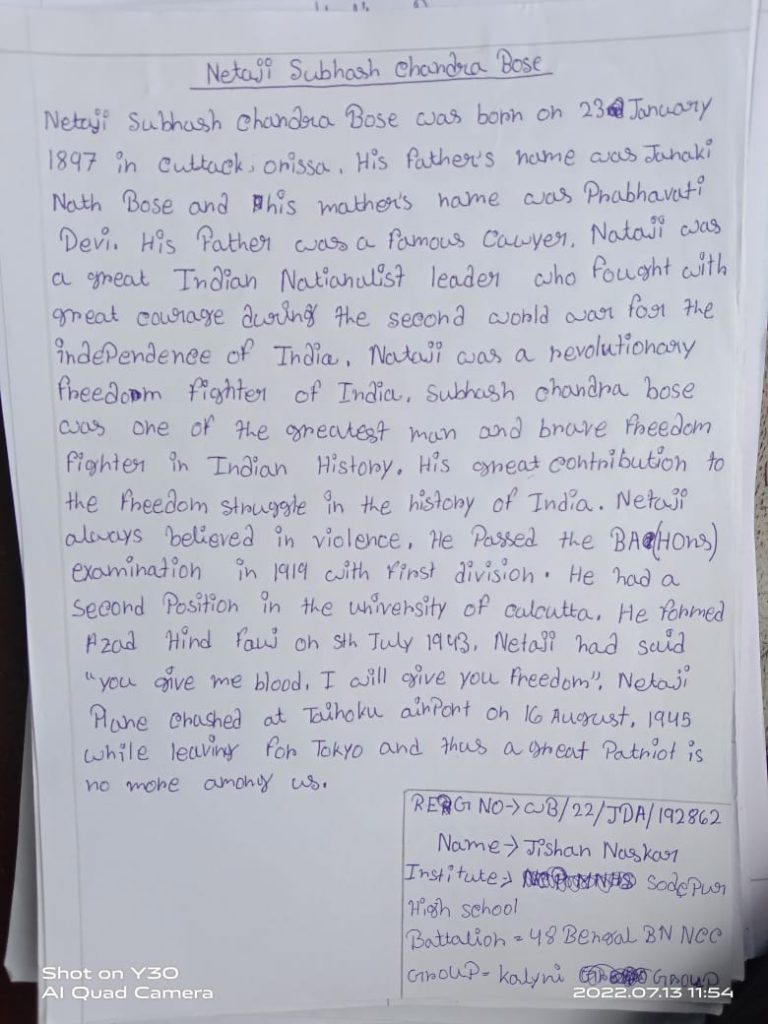 Netaji Subhash Chandra Bose
Netaji Subhash Chandra Bose was born on 23 January
1897 in cuttack, orissa. His father's name was Janaki
Nath Bose and his mather's name was Prabhavati
Devi. His father was a famous Cawyer. Nataji was
a great Indian Natianalist leader who fought with
great courage during the second world war for the
independence of India. Nataji was a revolutionary
freedom fighter of India. Subhash chandra bose
was one of the greatest man and brave freedom
fighter in Indian History. His great contribution to
the freedom struggle in the history of India. Netaji
always believed in violence. He Passed the BA(HOns)
examination in 1919 with first division. He had a
second Position in the university of calcutta. He formed
Azad Hind Fauj on 5th July 1943. Netaji had said
"you give me blood, I will give you freedom". Netaji
Plane crashed at Taihoku airPort on 16 August, 1945
while leaving for Tokyo and thus a great Patriot is
no more among us.
REG NO→ WB/22/JDA/192862
Name→ Jishan Naskar
Institute→ SodePur
High school
Battalion = 48 Bengal BN NCC
GROUP- Kalyni GROUP
Shot on Y30
AI Quad Camera
2022.07.13 11:54